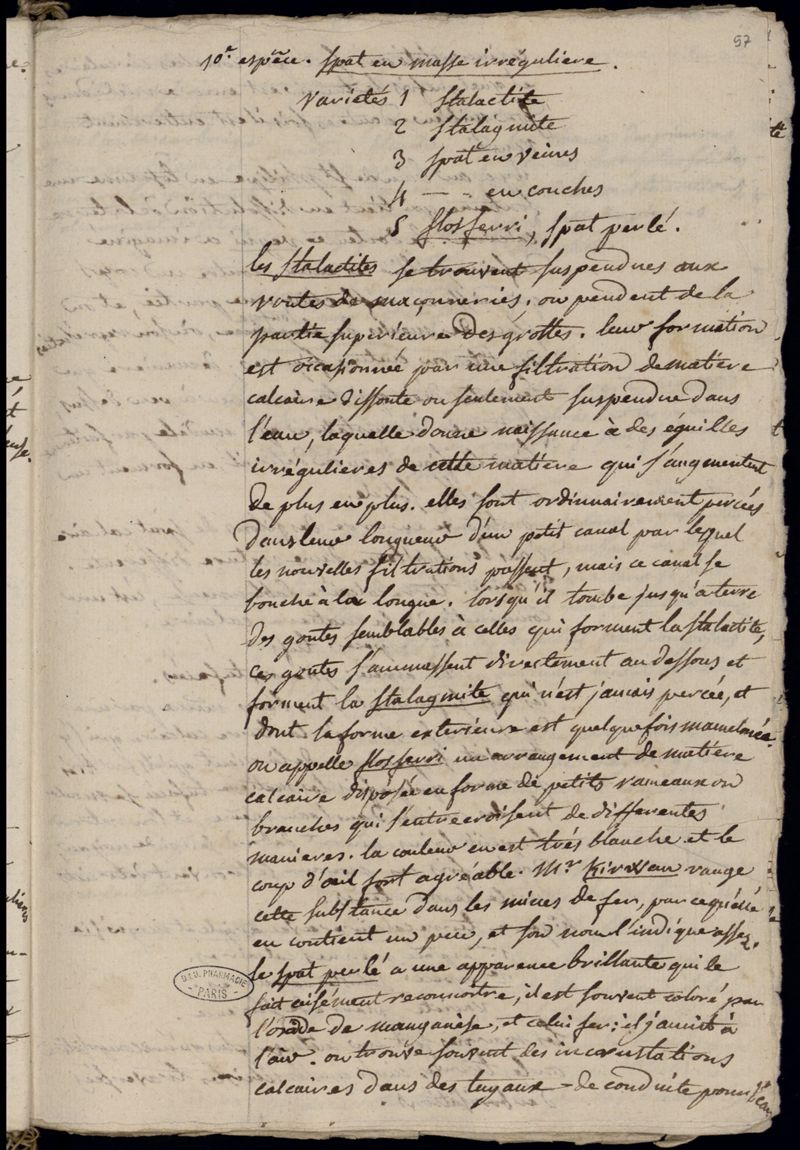 97
10e espece. Spat en masse irréguliere.
Varietés 1 Stalactite
2 Stalagmite
3 Spat en veines
4 — - en couches
5 flos ferri, Spat perlé.
les Stalactites se trouvent suspendues aux
voutes de maçonneries. ou pendent de la
partie superieure des grottes. leur formation
est occasionnée par une filtration de matiere
calcaire dissoute ou seulement suspendue dans
l'eau, laquelle donne naissance à des éguilles
irrégulieres de cette matiere qui s'augmentent
de plus en plus. elles sont ordinnairement percées
dans leur longueur d'un petit canal par lequel
les nouvelles filtrations passent, mais ce canal se
bouche à la longue. lorsqu'il tombe jusqu'a terre
des goutes semblables à celles qui forment la stalactite,
ces goutes s'ammassent directement au dessous et
forment la Stalagmite qui n'est jamais percée, et
dont la forme exterieure est quelquefois mamelonée.
on appelle flos ferri un arrangement de matiere
calcaire disposée en forme de petits rameaux ou
branches qui s'entrecroisent de differentes
manieres. la couleur en est trés blanche et le
coup d'œil fort agréable. Mr. Kirwan range
cette substance dans les mines de fer, parce qu'elle
en contient un peu, et son nom l'indique assez.
le spat perlé a une apparence brillante qui le
fait aisément reconnoitre, il est souvent coloré par
l'oxide de manganèse, et celui fer; il jaunit à
l'air. on trouve souvent des incrustations
calcaires dans des tuyaux de conduite pour l'eau
B.I.U. PHARMACIE
PARIS